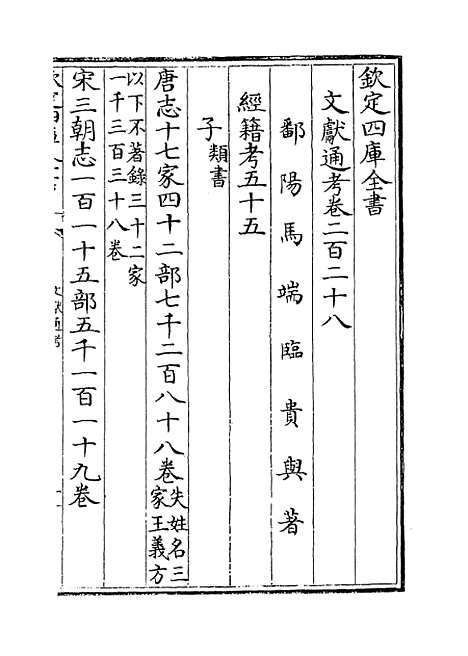 欽定四庫全書
文獻通考卷二百二十八
鄱陽馬端臨貴與著
經籍考五十五
子類書
唐志十七家四十二部七千二百八十八卷失姓名三
家王義方
以下不著錄三十二家
一千三百三十八卷
宋三朝志一百一十五部五千一百一十九卷